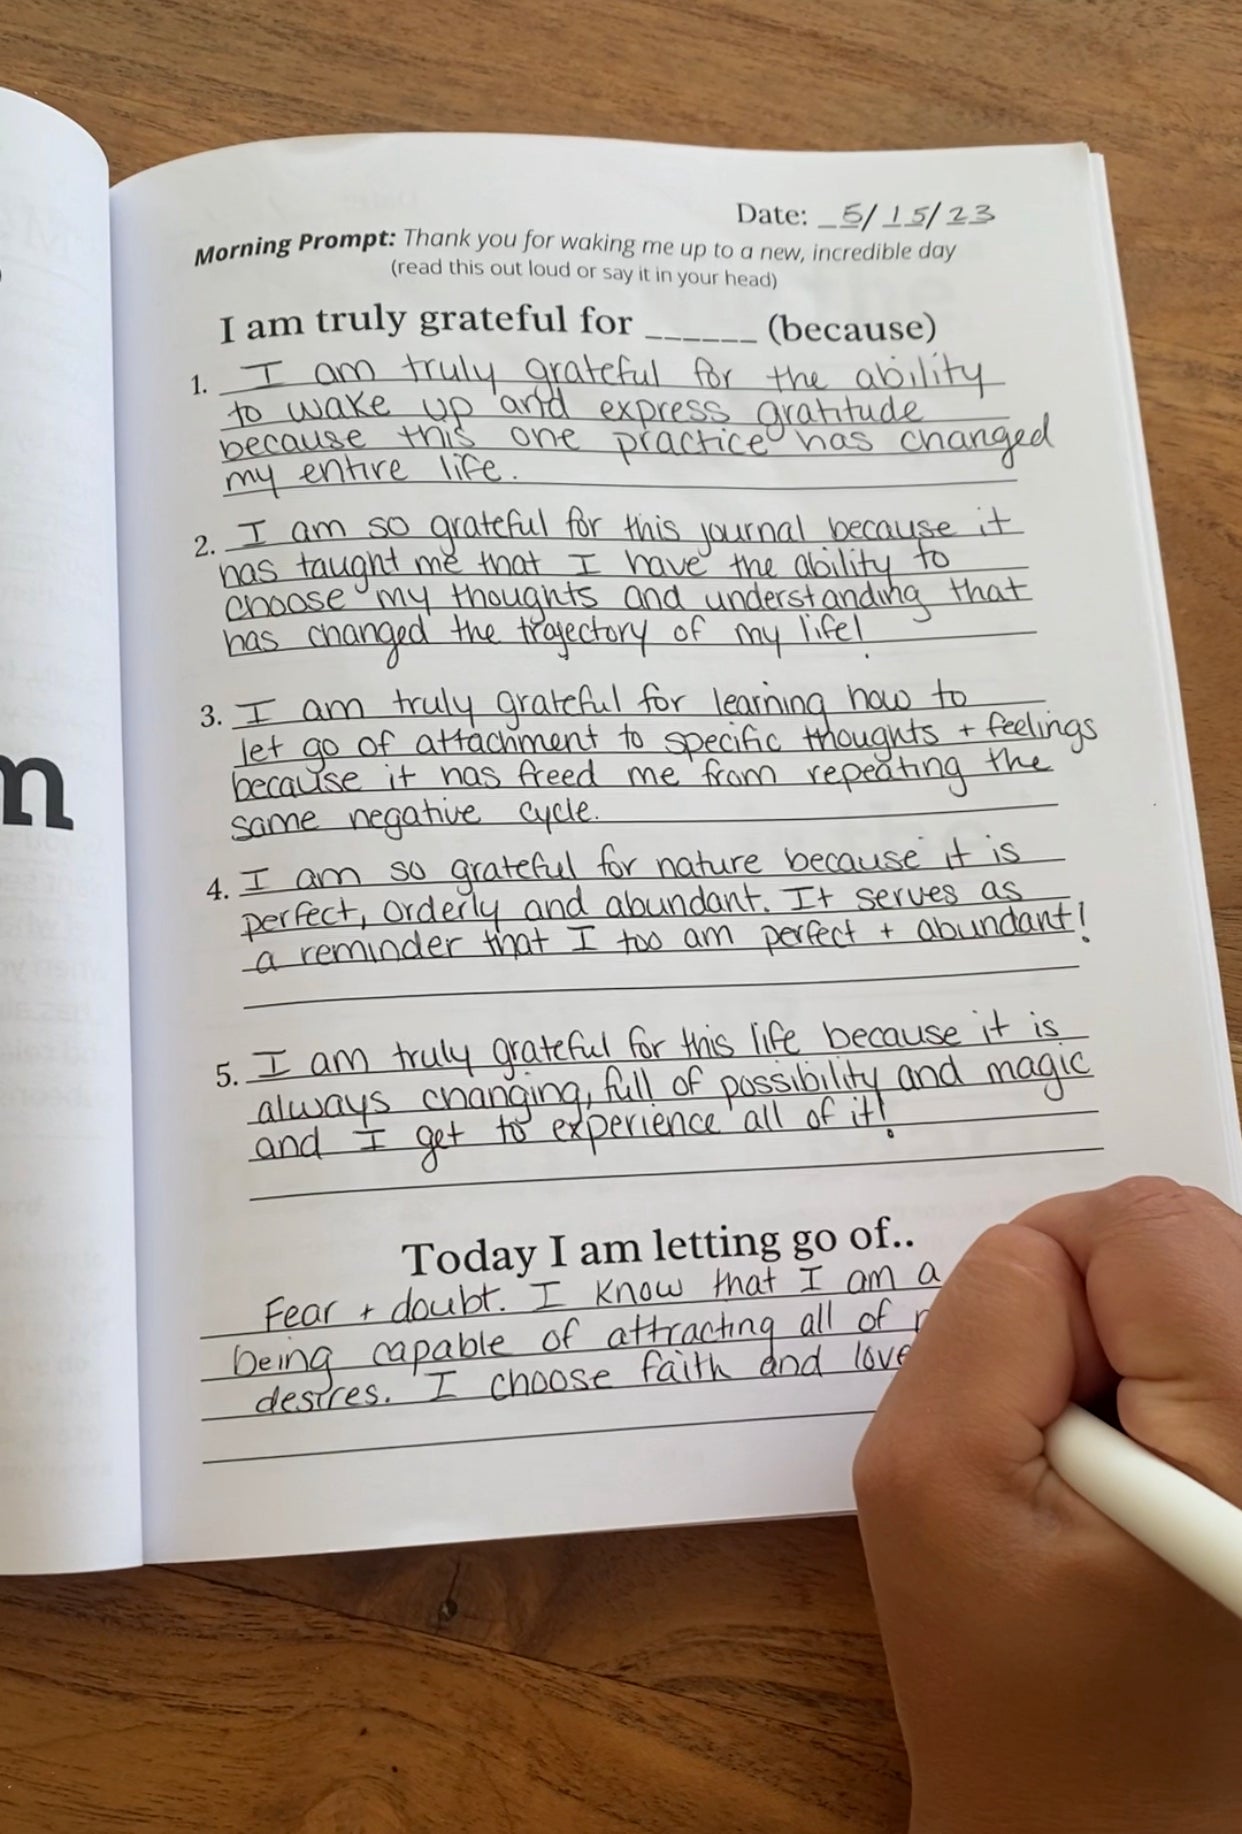 m
Date: 5/15/23
Morning Prompt: Thank you for waking me up to a new, incredible day
(read this out loud or say it in your head)
I am truly grateful for ______ (because)
1. I am truly grateful for the ability
to wake up and express gratitude
because this one practice has changed
my entire life.
2. I am so grateful for this journal because it
has taught me that I have the ability to
choose my thoughts and understanding that
has changed the trajectory of my life!
3. I am truly grateful for learning how to
let go of attachment to specific thoughts + feelings
because it has freed me from repeating the
same negative cycle.
4. I am so grateful for nature because it is
perfect, orderly and abundant. It serves as
a reminder that I too am perfect + abundant!
5. I am truly grateful for this life because it is
always changing, full of possibility and magic
and I get to experience all of it!
Today I am letting go of..
Fear + doubt. I know that I am a
being capable of attracting all of
desires. I choose faith and love